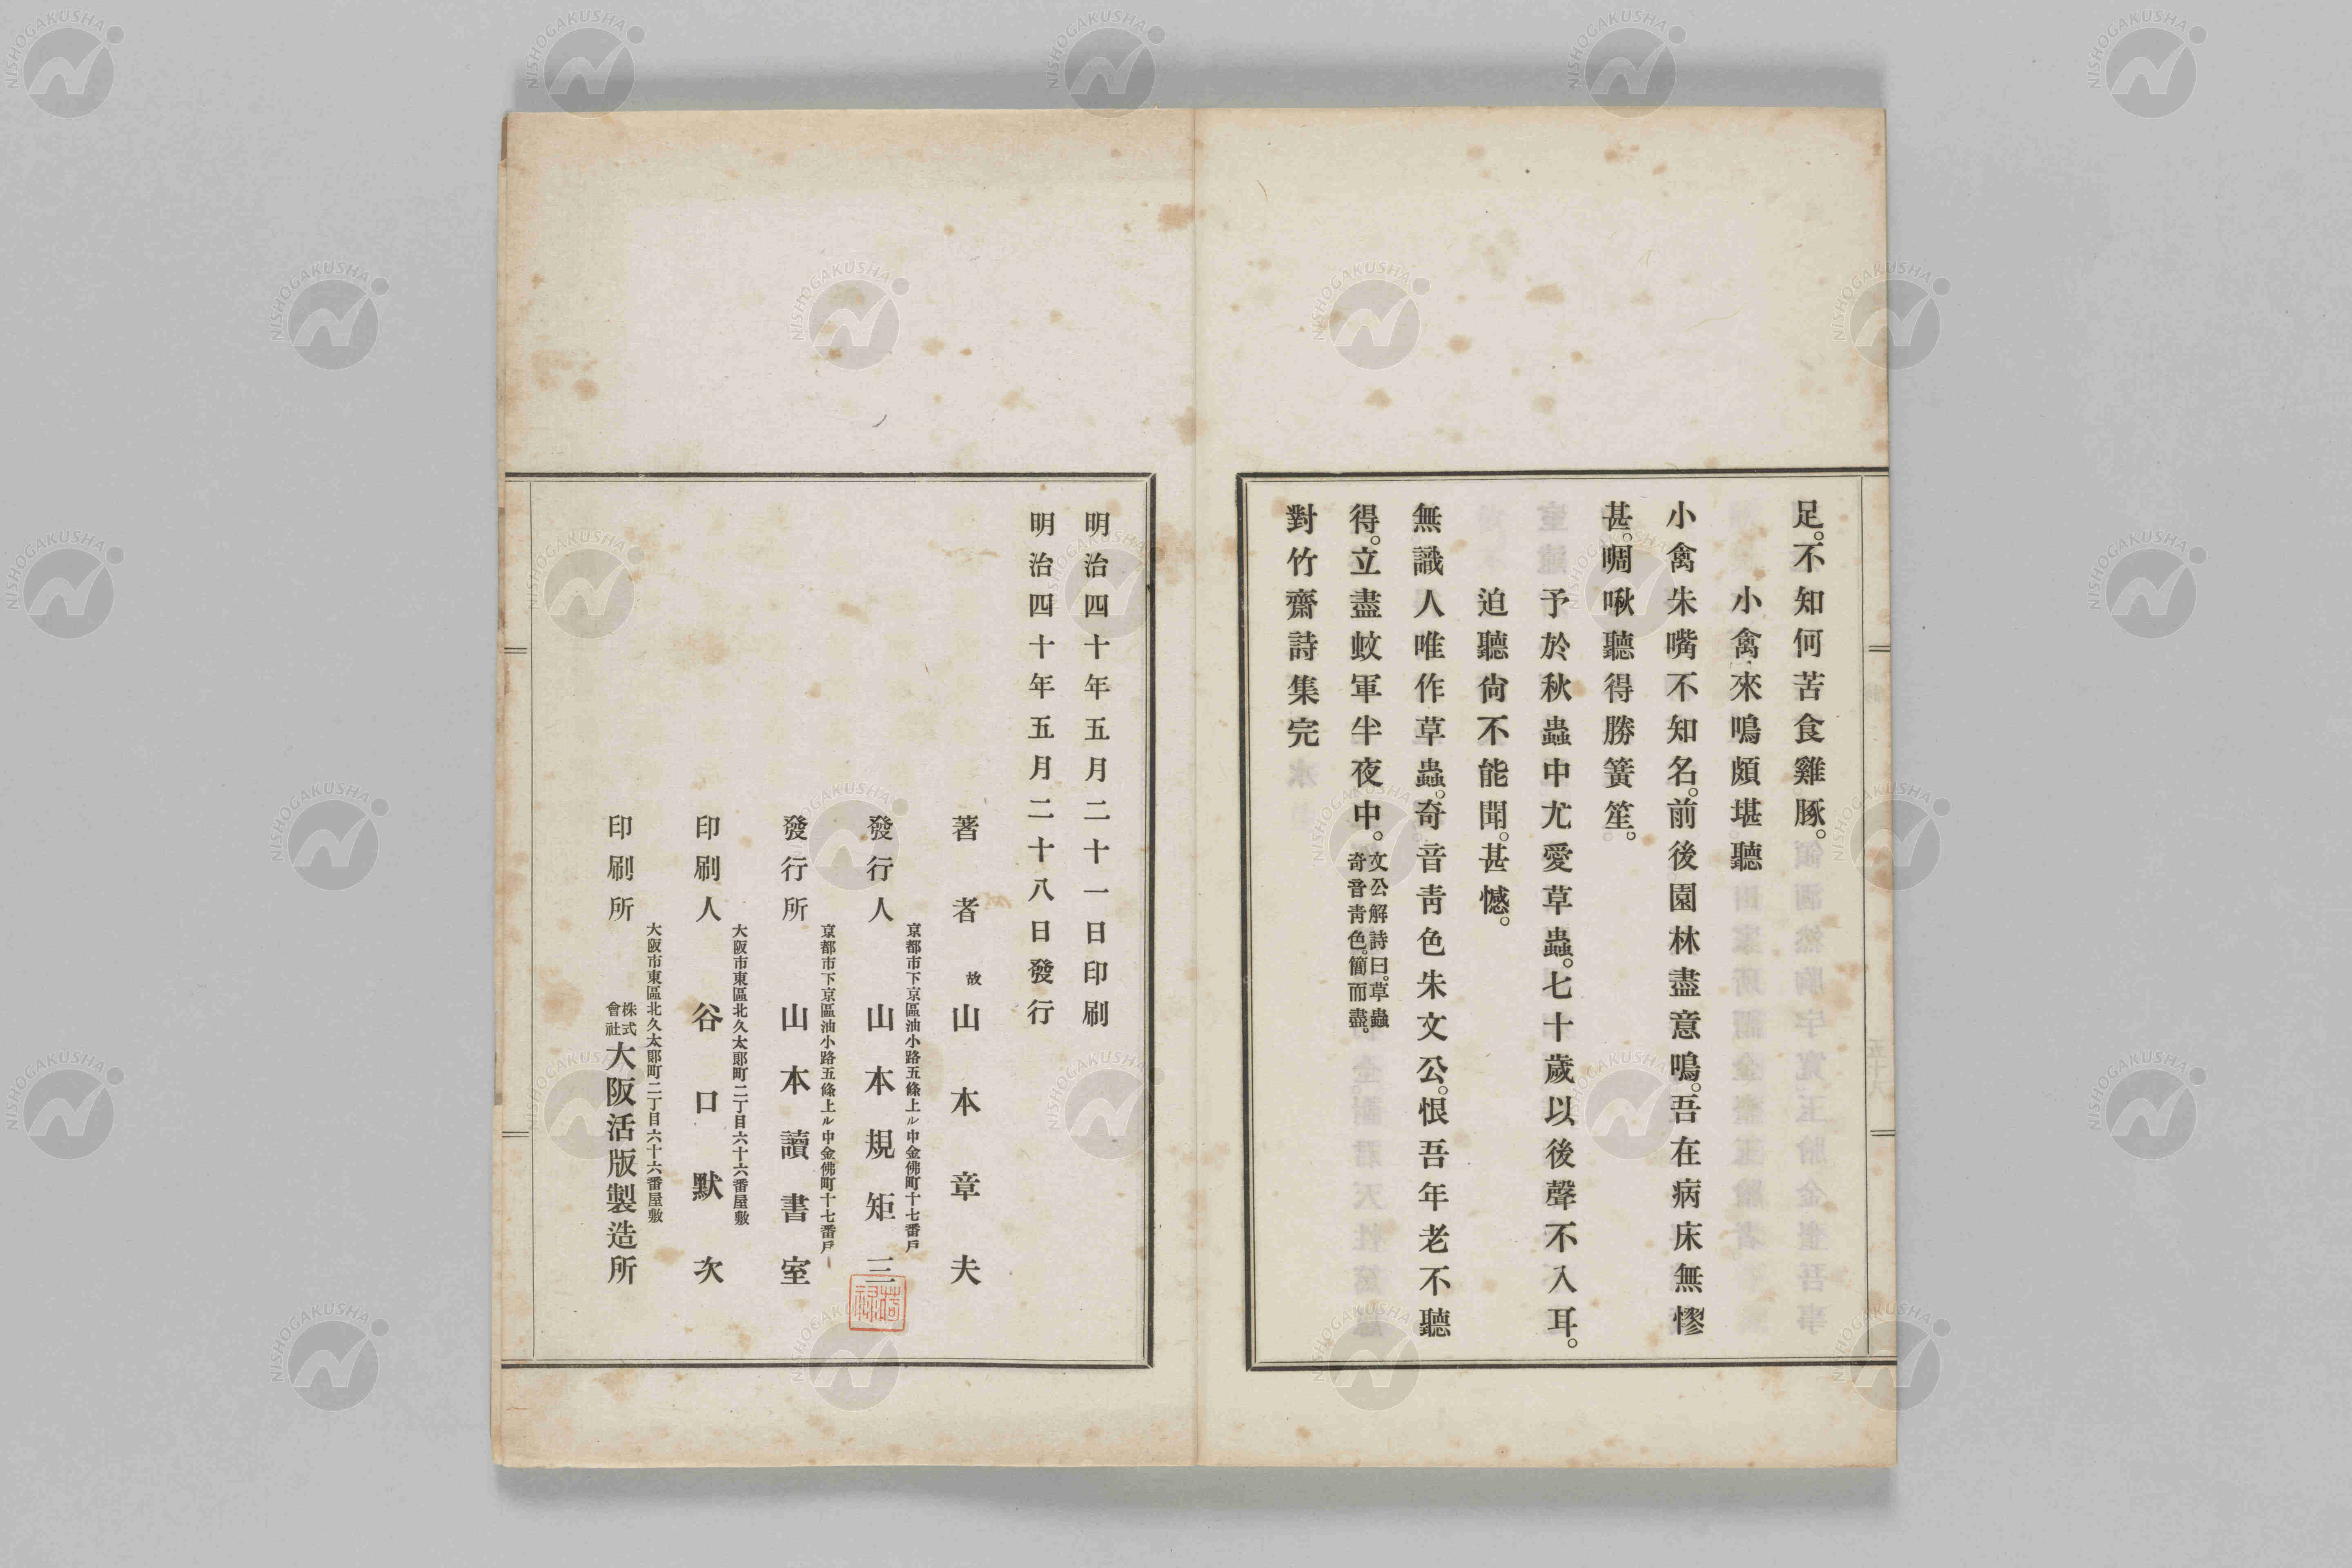 足。不知何苦食雞豚。
小禽來鳴頗堪聽
小禽朱嘴不知名。前後園林盡意鳴。吾在病床無憀
甚。啁啾聽得勝簧笙。
予於秋蟲中尤愛草蟲。七十歲以後聲不入耳。
迫聽尙不能聞。甚憾。
無識人唯作草蟲。奇音靑色朱文公。恨吾年老不聽
得。立盡蚊軍半夜中。文公解詩曰。草蟲
奇音靑色。簡而盡。
對竹齋詩集完
明治四十年五月二十一日印刷
明治四十年五月二十八日發行
著者 故 山本章夫
京都市下京區油小路五條上ル中金佛町十七番戶
發行人 山本規矩三
京都市下京區油小路五條上ル中金佛町十七番戶
發行所 山本讀書室
大阪市東區北久太郞町二丁目六十六番屋敷
印刷人 谷口默次
大阪市東區北久太郞町二丁目六十六番屋敷
印刷所 株式會社 大阪活版製造所
NISHOGAKUSHA